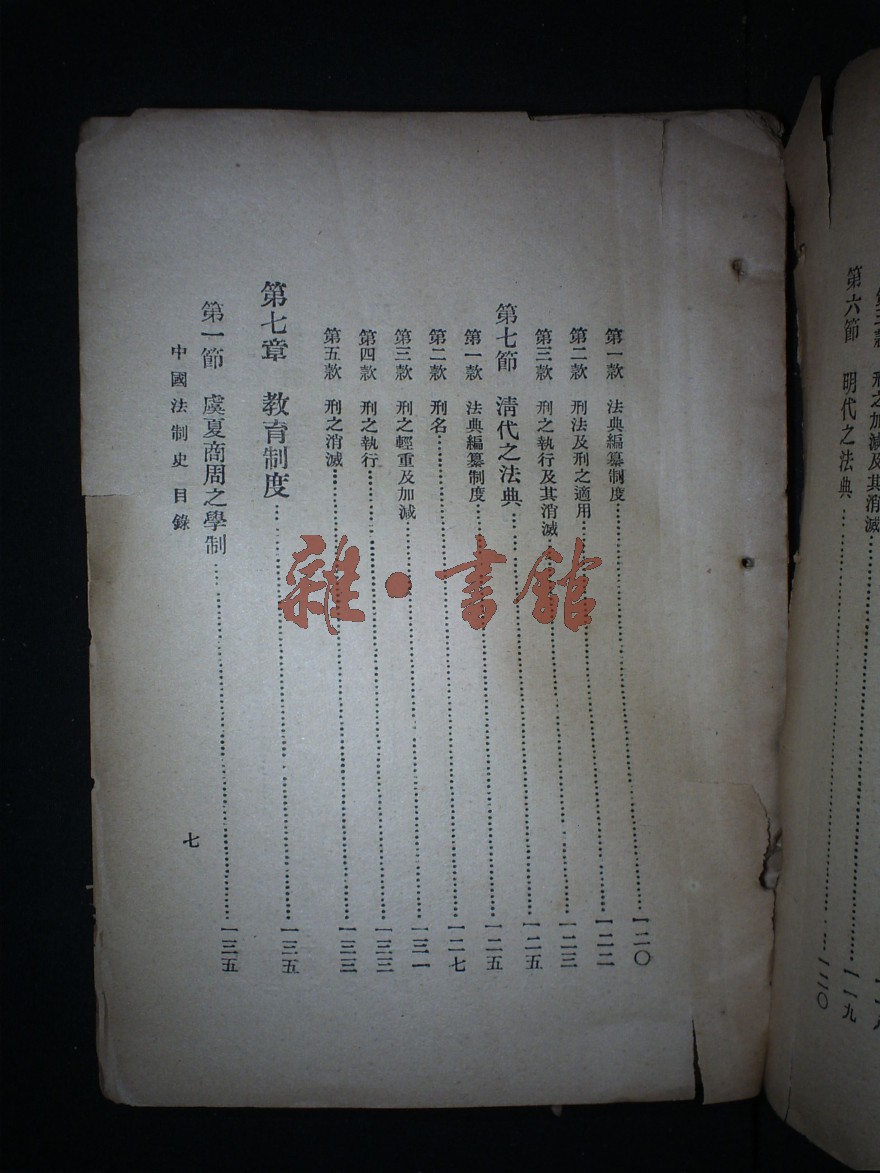 第六節　明代之法典……一二〇
第一款　法典編纂制度……一二〇
第二款　刑法及刑之適用……一二二
第三款　刑之執行及其消滅……一二三
第七節　清代之法典……一二五
第一款　法典編纂制度……一二五
第二款　刑名……一二七
第三款　刑之輕重及加減……一三一
第四款　刑之執行……一三三
第五款　刑之消滅……一三三
第七章　教育制度……一三五
第一節　虞夏商周之學制……一三五
中國法制史　目錄
七
雜·書館